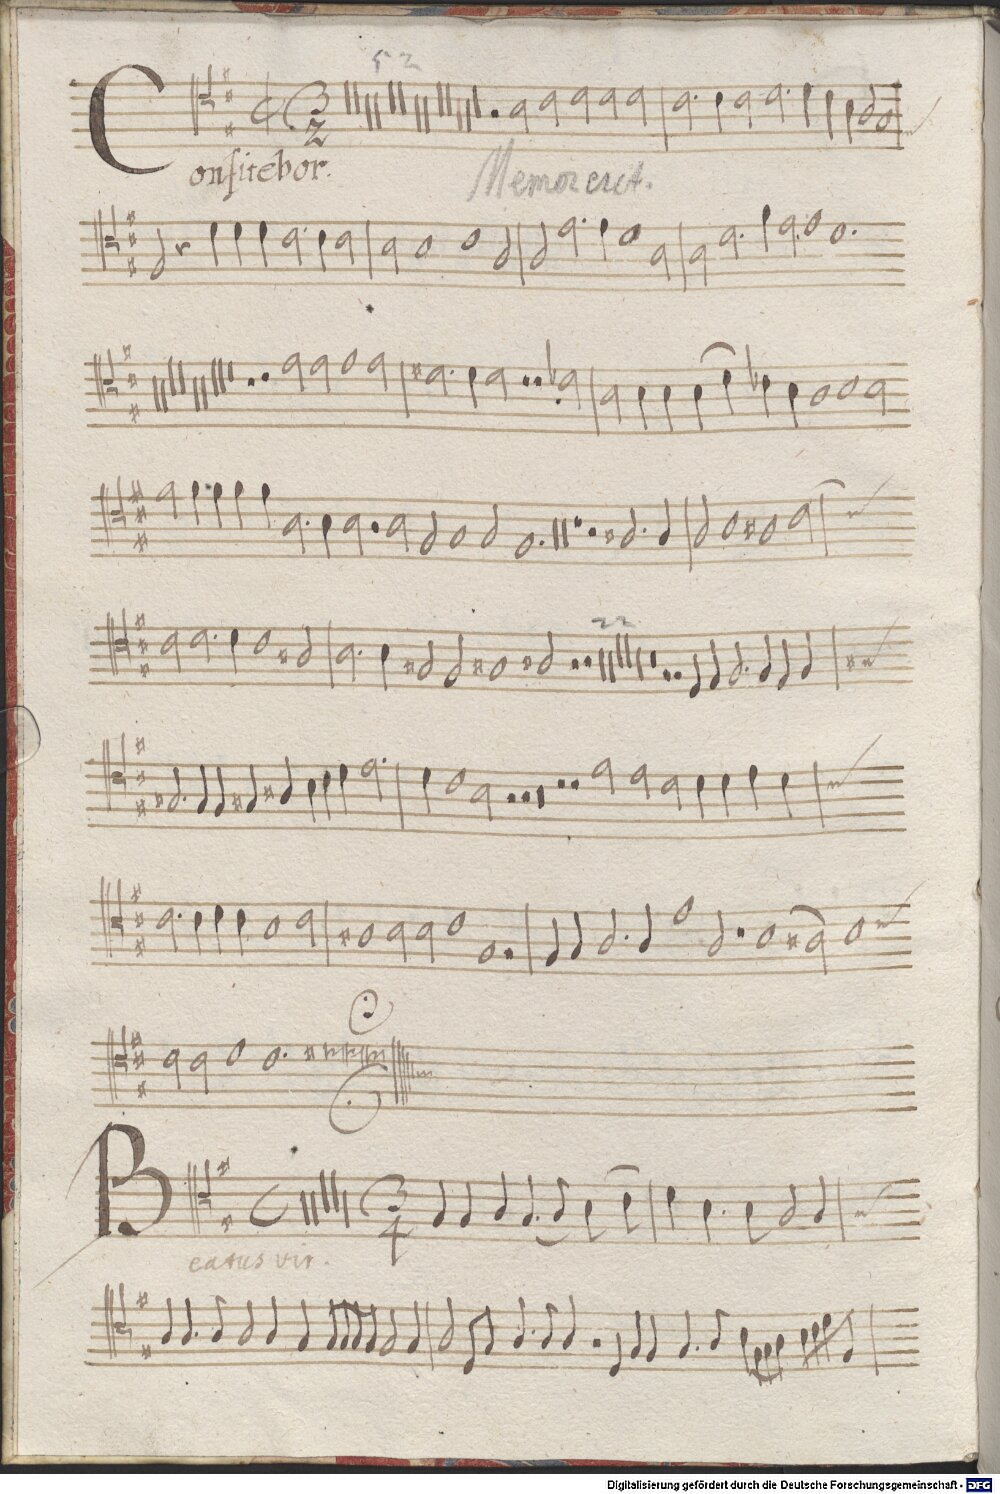 52
3
2
Confitebor.
Memor erit.
22
3
4
Beatus vir.
Digitalisierung gefördert durch die Deutsche Forschungsgemeinschaft - DFG